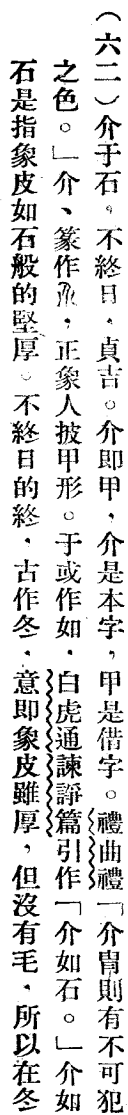 （六二）介于石。不終日，貞吉。介即甲，介是本字，甲是借字。禮曲禮「介冑則有不可犯
之色。」介、篆作，正象人披甲形。于或作如，白虎通諫諍篇引作「介如石。」介如
石是指象皮如石般的堅厚。不終日的終，古作冬，意即象皮雖厚，但沒有毛，所以在冬